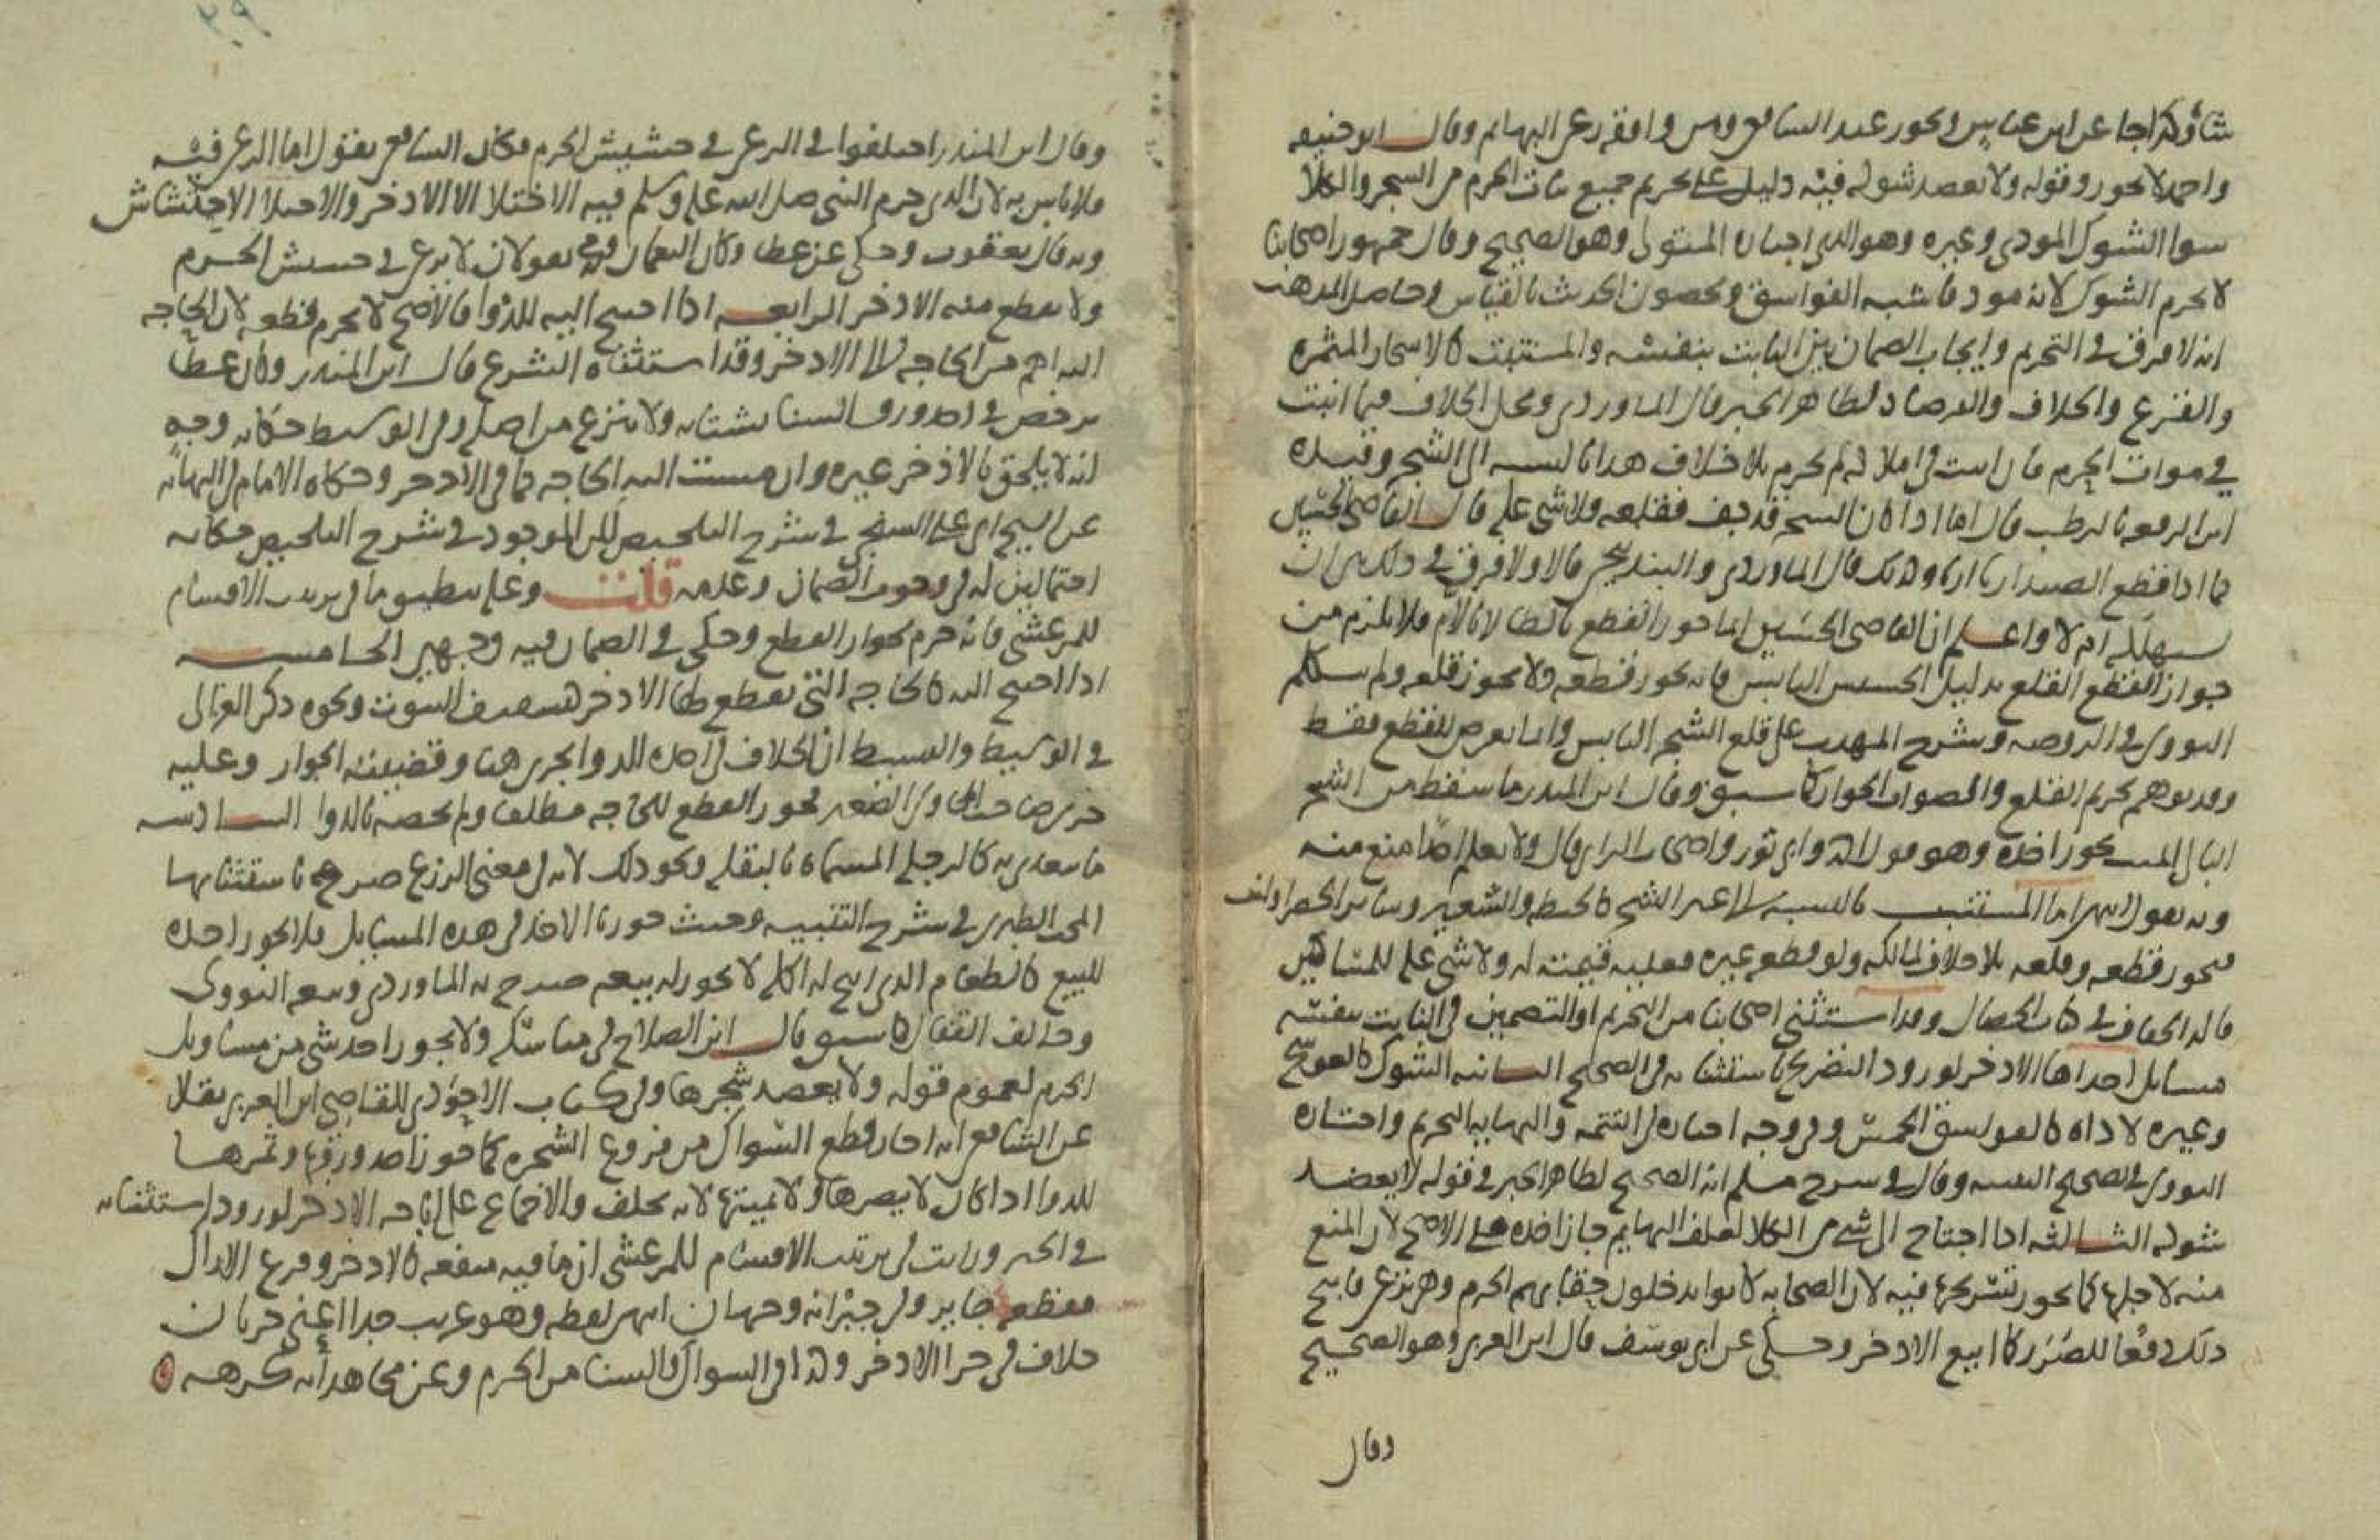 شاؤ وكذا جا عن ابن عباس ويجوز عند الشافعي ومن وافقه رعي البهايم وقال ابو حنيفه
واحمد لا يجوز وقوله ولا يعضد شوكه فيه دليل على تحريم جميع نبات الحرم من الشجر والكلا
سوا الشوك المودي وغيره وهو الذي اختاره المتولي وهو الصحيح وقال جمهور اصحابنا
لا يحرم الشوك لانه موذ فاشبه الفواسق ويخصون الحديث بالقياس وحاصل المذهب
انه لا فرق في التحريم وايجاب الضمان بين النابت بنفسه والمستنبت كالاشجار المثمره
والفرع والخلاف والفرصاد لظاهر الخبر قال الماوردي ومحل الخلاف فيما انبت
في موات الحرم فان انبت في املاكه لم يحرم بلا خلاف هذا بالنسبه الى الشجر وقيده
ابن الرفعه بالرطب قال اما اذا كان الشجر قد جف فقلعه فلا شي عليه قال القاضي الحسين
كما اذا قطع الصيد اربا اربا وكذلك قال الماوردي والبندنيجي قالا ولا فرق في ذلك بين ان
يستهلكه ام لا واعلم ان القاضي الحسين انما جوز القطع بالطا لا باللام فلا يلزم من
جواز القطع القلع بدليل الحشيش اليابس فانه يجوز قطعه ولا يجوز قلعه ولم يتكلم
النووي في الروضه وشرح المهذب على قلع الشجر اليابس وانما تعرض للقطع فقط
وقد يوهم تحريم القلع والصواب الجواز كما سبق وقال ابن المنذر ما سقط من الشجر
البالي الميت يجوز اخذه وهو قول احمد وابي ثور واصحاب الراي قال ولا نعلم احدا منع منه
وبه نقول انتهى اما المستنبت بالنسبه الى غير الشجر كالحنطه والشعير وساير الخضراوات
فيجوز قطعه وقلعه بلا خلاف لمالكه ولو قطعه غيره فعليه قيمته له ولا شي عليه للمساكين
قاله الخفاف في كتاب الخصال وقد استثنى اصحابنا من التحريم او التضمين في النابت بنفسه
مسايل احداها الاذخر لورود التصريح باستثنايه في الصحيح الثانيه الشوك كالعوسج
وغيره لاذاه كالفواسق الخمس وفي وجه اختاره في التتمه والنهايه التحريم واختاره
النووي في تصحيح التنبيه وقال في شرح مسلم انه الصحيح لظاهر الخبر في قوله لا يعضد
شوكه الثالثه اذا احتاج الى شي من الكلا لعلف البهايم جاز اخذه على الاصح لان المنع
منه لاجلها كما يجوز تسريحها فيه لان الصحابه كانوا يدخلون بهم الحرم وهي ترعى فابيح
ذلك دفعا للضرر كما ابيح الاذخر وحكي عن ابي يوسف قال ابن العربي وهو الصحيح
وقال
وقال ابن المنذر اختلفوا في الرعي في حشيش الحرم فكان الشافعي يقول اما الرعي فيه
فلا باس به لان الذي حرم النبي صلى الله عليه وسلم فيه الاختلا الا الاذخر والاختلا الاحتشاش
وبه قال يعقوب وحكي عن عطا وكان النعمان ومحمد يقولان لا يرعى في حشيش الحرم
ولا يقطع منه الا الاذخر الرابعه اذا احتيج اليه للدوا فالاصح لا يحرم قطعه لان الحاجه
اليه اهم من الحاجه الى الاذخر وقد استثناه الشرع قال ابن المنذر وكان عطا
يرخص في اخذ ورق السنا يستمشى به ولا ينزع من اصله وفي الوسيط حكايه وجه
انه لا يلحق بالاذخر غيره وان مست اليه الحاجه كما في الاذخر وحكاه الامام في النهايه
عن الشيخ ابي علي السنجي في شرح التلخيص لكن الموجود في شرح التلخيص حكايه
احتمالين له في وجوب الضمان وعدمه قلت وعليه ينطبق ما في ترتيب الاقسام
للمرعشي فانه جزم بجواز القطع وحكى في الضمان فيه وجهين الخامسه
اذا احتيج اليه كالحاجه التي يقطع لها الاذخر كتسقيف البيوت ونحوه ذكر الغزالي
في الوسيط والبسيط ان الخلاف في اخذه للدوا يجري هنا وقضيته الجواز وعليه
جرى صاحب الحاوي الصغير فجوز القطع للحاجه مطلقا ولم يخصه بالدوا السادسه
ما يتغذى به كالرجله المسماه بالبقله ونحو ذلك لانه في معنى الزرع صرح باستثنايها
المحب الطبري في شرح التنبيه وحيث جوزنا الاخذ في هذه المسايل فلا يجوز اخذه
للبيع كالطعام الذي ابيح له اكله لا يجوز له بيعه صرح به الماوردي وتبعه النووي
وخالف القفال كما سبق قال ابن الصلاح في مناسكه ولا يجوز اخذ شي من مساويك
الحرم لعموم قوله ولا يعضد شجرها وفي كتاب الاحوذي للقاضي ابن العربي نقلا
عن الشافعي انه اجاز قطع السواك من فروع الشجره كما جوز اخذ ورقها وثمرها
للدوا اذا كان لا يضرها ولا يميتها لانه يخلف والاجماع على اباحه الاذخر لورود استثنايه
في الخبر ورايت في ترتيب الاقسام للمرعشي ان ما فيه منفعه كالاذخر وفرع الاراك
فقطعه جايز وفي جبرانه وجهان انتهى لفظه وهو غريب جدا اعني جريان
خلاف في جزا الاذخر وكذا في السواك والسنا من الحرم وعن مجاهد انه كرهه